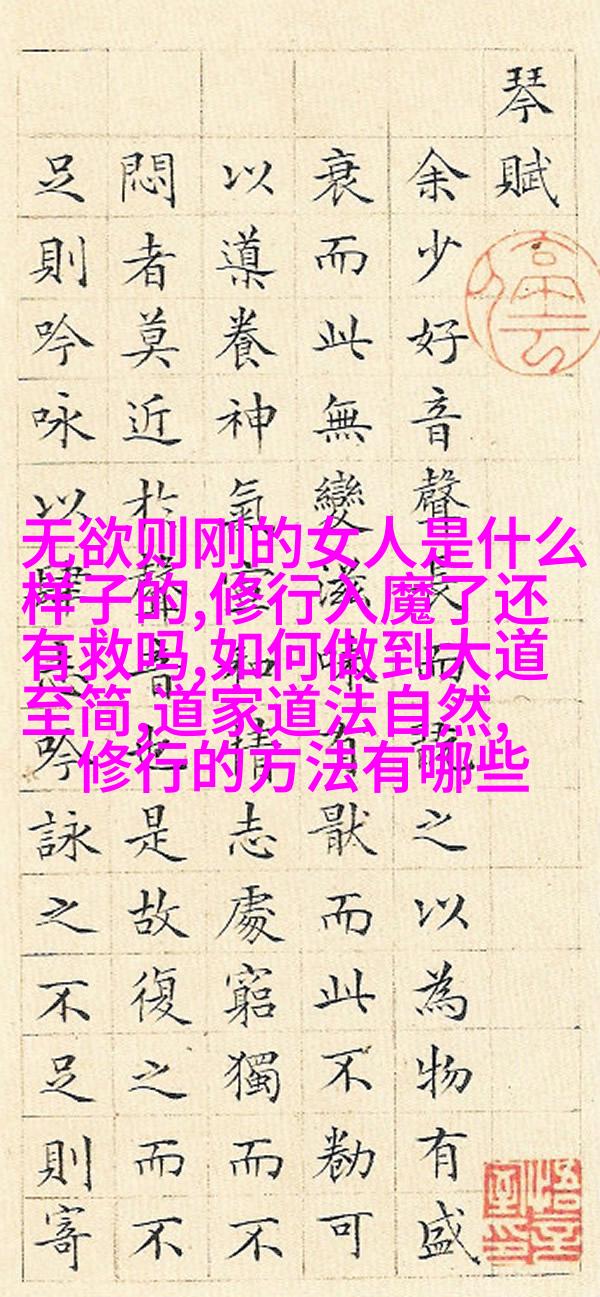 琴賦
余少好音聲長而翫之以為物有盛
衰而此無變滋味有猒而此不勌可
以導養神氣宣和情志處窮獨而不
悶者莫近於聲音也是故復之而不
足則吟咏以肆志吟詠之不足則寄
无欲则刚的女人是什么
样子的,修行入魔了还
有救吗,如何做到大道
至简,道家道法自然,
修行的方法有哪些